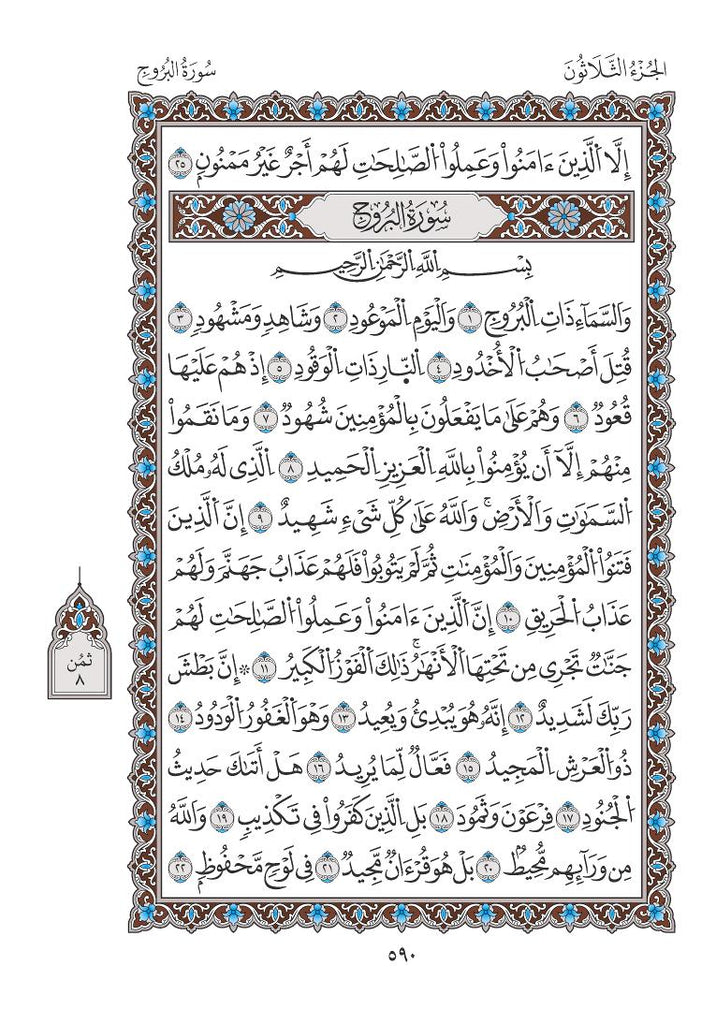 الجُزْءُ الثَّلَاثُونَ
سُورَةُ البُرُوجِ
إِلَّا ٱلَّذِينَ ءَامَنُواْ وَعَمِلُواْ ٱلصَّٰلِحَٰتِ لَهُمْ أَجْرٌ غَيْرُ مَمْنُونٍۭ ٢٥
سُورَةُ البُرُوجِ
بِسْمِ ٱللَّهِ ٱلرَّحْمَٰنِ ٱلرَّحِيمِ
وَٱلسَّمَآءِ ذَاتِ ٱلْبُرُوجِ ١ وَٱلْيَوْمِ ٱلْمَوْعُودِ ٢ وَشَاهِدٍ وَمَشْهُودٍ ٣
قُتِلَ أَصْحَٰبُ ٱلْأُخْدُودِ ٤ ٱلنَّارِ ذَاتِ ٱلْوَقُودِ ٥ إِذْ هُمْ عَلَيْهَا
قُعُودٌ ٦ وَهُمْ عَلَىٰ مَا يَفْعَلُونَ بِٱلْمُؤْمِنِينَ شُهُودٌ ٧ وَمَا نَقَمُواْ
مِنْهُمْ إِلَّآ أَن يُؤْمِنُواْ بِٱللَّهِ ٱلْعَزِيزِ ٱلْحَمِيدِ ٨ ٱلَّذِى لَهُۥ مُلْكُ
ٱلسَّمَٰوَٰتِ وَٱلْأَرْضِۚ وَٱللَّهُ عَلَىٰ كُلِّ شَىْءٍ شَهِيدٌ ٩ إِنَّ ٱلَّذِينَ
فَتَنُواْ ٱلْمُؤْمِنِينَ وَٱلْمُؤْمِنَٰتِ ثُمَّ لَمْ يَتُوبُواْ فَلَهُمْ عَذَابُ جَهَنَّمَ وَلَهُمْ
عَذَابُ ٱلْحَرِيقِ ١٠ إِنَّ ٱلَّذِينَ ءَامَنُواْ وَعَمِلُواْ ٱلصَّٰلِحَٰتِ لَهُمْ
جَنَّٰتٌ تَجْرِى مِن تَحْتِهَا ٱلْأَنْهَٰرُۚ ذَٰلِكَ ٱلْفَوْزُ ٱلْكَبِيرُ ١١ * إِنَّ بَطْشَ
رَبِّكَ لَشَدِيدٌ ١٢ إِنَّهُۥ هُوَ يُبْدِئُ وَيُعِيدُ ١٣ وَهُوَ ٱلْغَفُورُ ٱلْوَدُودُ ١٤
ذُو ٱلْعَرْشِ ٱلْمَجِيدُ ١٥ فَعَّالٌ لِّمَا يُرِيدُ ١٦ هَلْ أَتَىٰكَ حَدِيثُ
ٱلْجُنُودِ ١٧ فِرْعَوْنَ وَثَمُودَ ١٨ بَلِ ٱلَّذِينَ كَفَرُواْ فِى تَكْذِيبٍ ١٩ وَٱللَّهُ
مِن وَرَآئِهِم مُّحِيطٌۢ ٢٠ بَلْ هُوَ قُرْءَانٌ مَّجِيدٌ ٢١ فِى لَوْحٍ مَّحْفُوظٍۭ ٢٢
ثُمُن
٨
٥٩٠